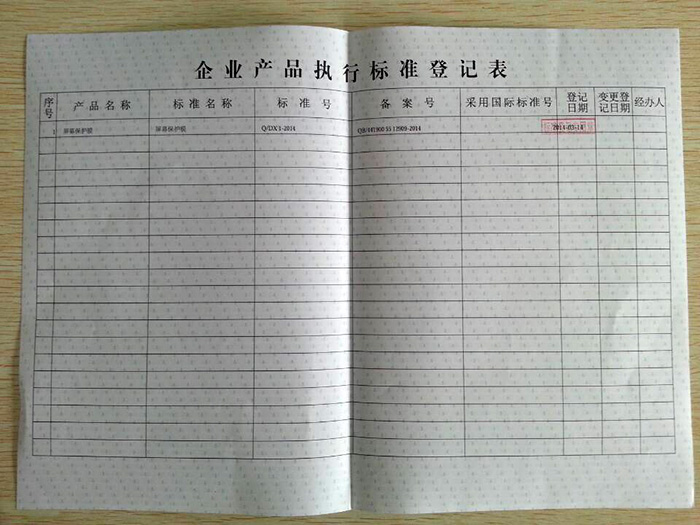 企业产品执行标准登记表
序号 产品名称 标准名称 标准号 备案号 采用国际标准号 登记日期 变更登记日期 经办人
1 屏幕保护膜 屏幕保护膜 Q/DX 1-2014 2014-03-14